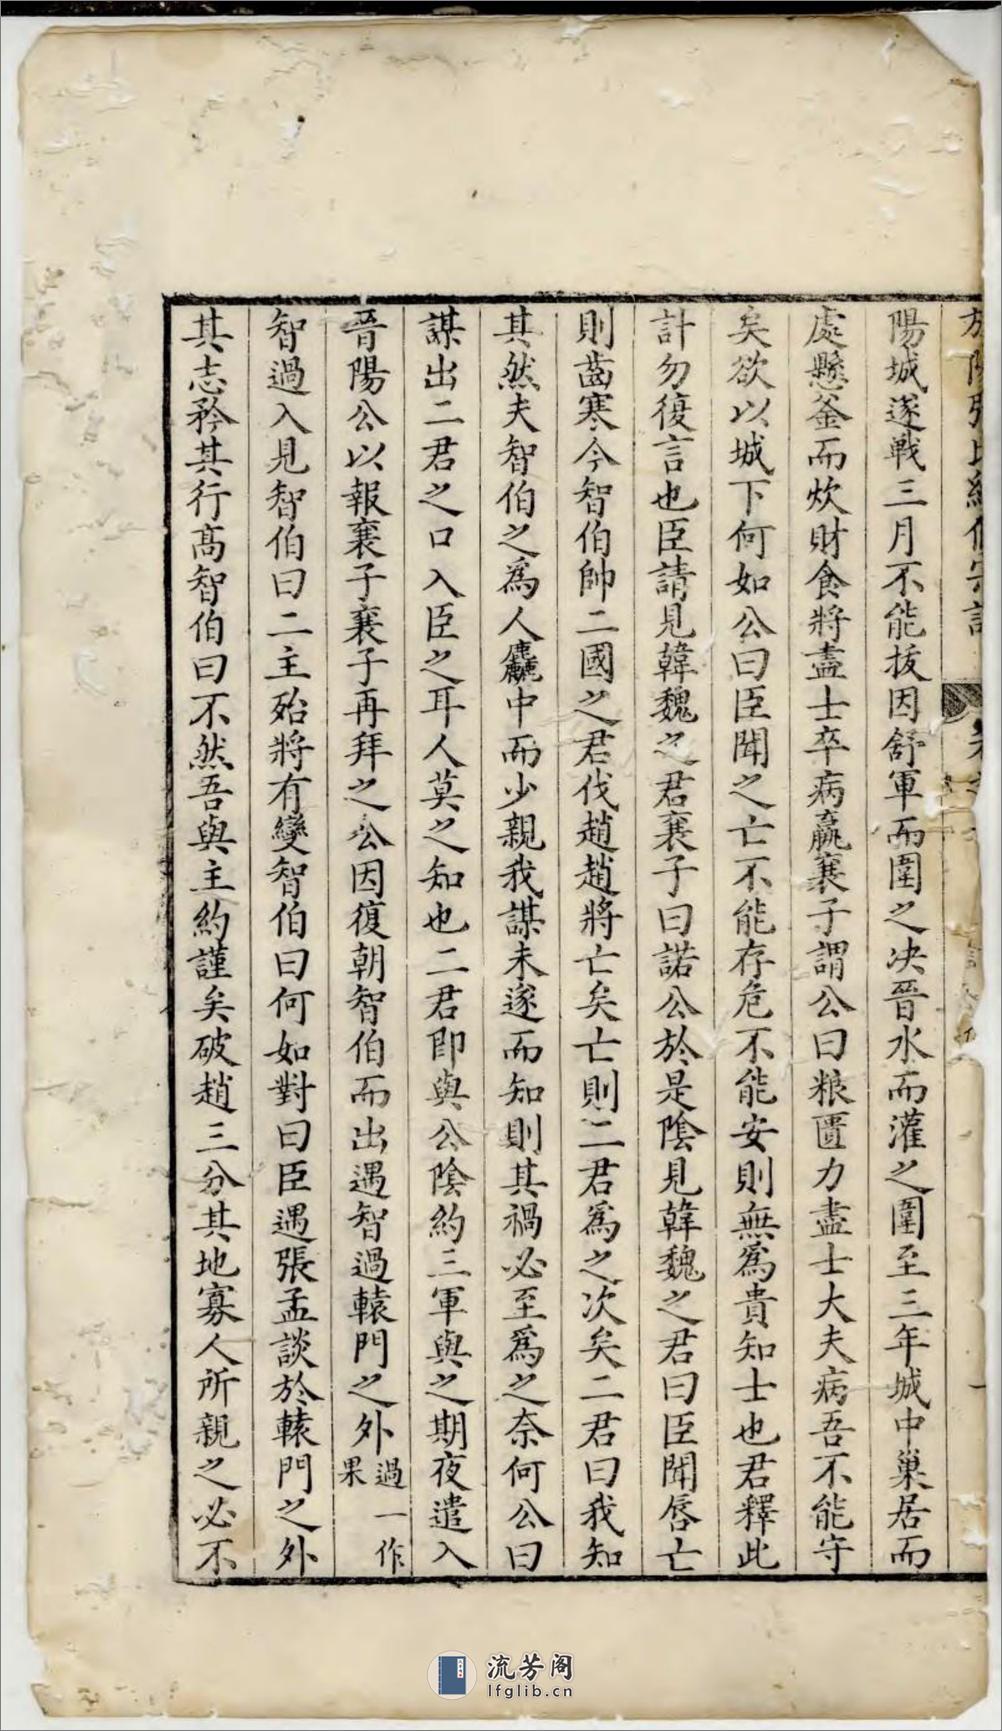 陽城遂戰三月不能拔因舒軍而圍之决晉水而灌之圍至三年城中巢居而
處懸釜而炊財食將盡士卒病羸襄子謂公曰粮匱力盡士大夫病吾不能守
矣欲以城下何如公曰臣聞之亡不能存危不能安則無爲貴知士也君釋此
計勿復言也臣請見韓魏之君襄子曰諾公於是陰見韓魏之君曰臣聞唇亡
則齒寒今智伯帥二國之君伐趙趙將亡矣亡則二君爲之次矣二君曰我知
其然夫智伯之爲人麤中而少親我謀未遂而知則其禍必至爲之奈何公曰
謀出二君之口入臣之耳人莫之知也二君即與公陰約三軍與之期夜遣入
晉陽公以報襄子襄子再拜之公因復朝智伯而出遇智過轅門之外過一作果
智過入見智伯曰二主殆將有變智伯曰何如對曰臣遇張孟談於轅門之外
其志矜其行高智伯曰不然吾與主約謹矣破趙三分其地寡人所親之必不
流芳阁
lfglib.cn